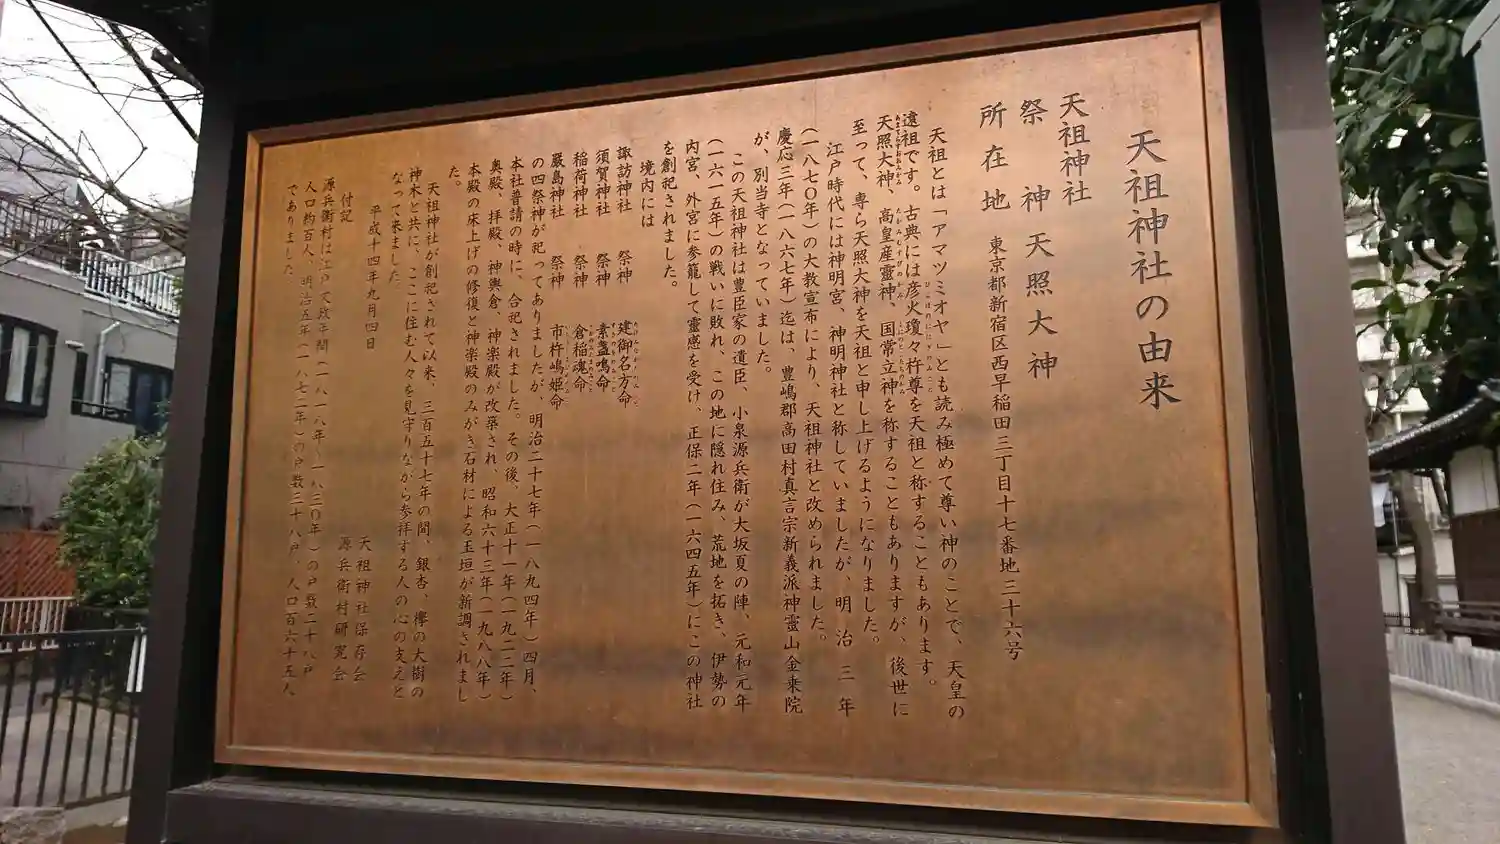 天祖神社の由来
天祖神社
祭神 天照大神
所在地 東京都新宿区西早稲田三丁目十七番地三十六号
天祖とは「アマツミオヤ」とも読み極めて尊い神のことで、天皇の
遠祖です。古典には彦火瓊々杵尊を天祖と称することもあります。
天照大神、高皇産靈神、国常立神を称することもありますが、後世に
至って、専ら天照大神を天祖と申し上げるようになりました。
江戸時代には神明宮、神明神社と称していましたが、明治三年
(一八七〇年)の大教宣布により、天祖神社と改められました。
慶応三年(一八六七年)迄は、豊嶋郡高田村真言宗新義派神靈山金乗院
が、別当寺となっていました。
この天祖神社は豊臣家の遺臣、小泉源兵衛が大坂夏の陣、元和元年
(一六一五年)の戦いに敗れ、この地に隠れ住み、荒地を拓き、伊勢の
内宮、外宮に参籠して靈感を受け、正保二年(一六四五年)にこの神社
を創祀されました。
境内には
諏訪神社 祭神 建御名方命
須賀神社 祭神 素盞鳴命
稲荷神社 祭神 倉稲魂命
厳島神社 祭神 市杵嶋姫命
の四祭神が祀ってありましたが、明治二十七年(一八九四年)四月、
本社普請の時に、合祀されました。その後、大正十一年(一九二二年)
奥殿、拝殿、神輿倉、神楽殿が改築され、昭和六十三年(一九八八年)
本殿の床上げの修復と神楽殿のみがき石材による玉垣が新調されまし
た。
天祖神社が創祀されて以来、三百五十七年の間、銀杏、欅の大樹の
神木と共に、ここに住む人々を見守りながら参拝する人の心の支えと
なって来ました。
平成十四年九月四日
天祖神社保存会
源兵衛村研究会
付記
源兵衛村は江戸文政年間(一八一八年~一八三〇年)の戸数二十八戸
人口約百人、明治五年(一八七二年)の戸数三十八戸、人口百六十五人
でありました。